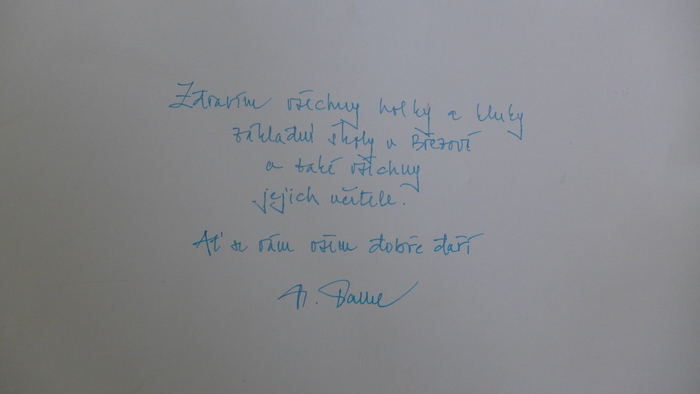 Zdravím všechny holky a kluky
základní školy v Březové
a také všechny
jejich učitele.
Ať se vám všem dobře daří